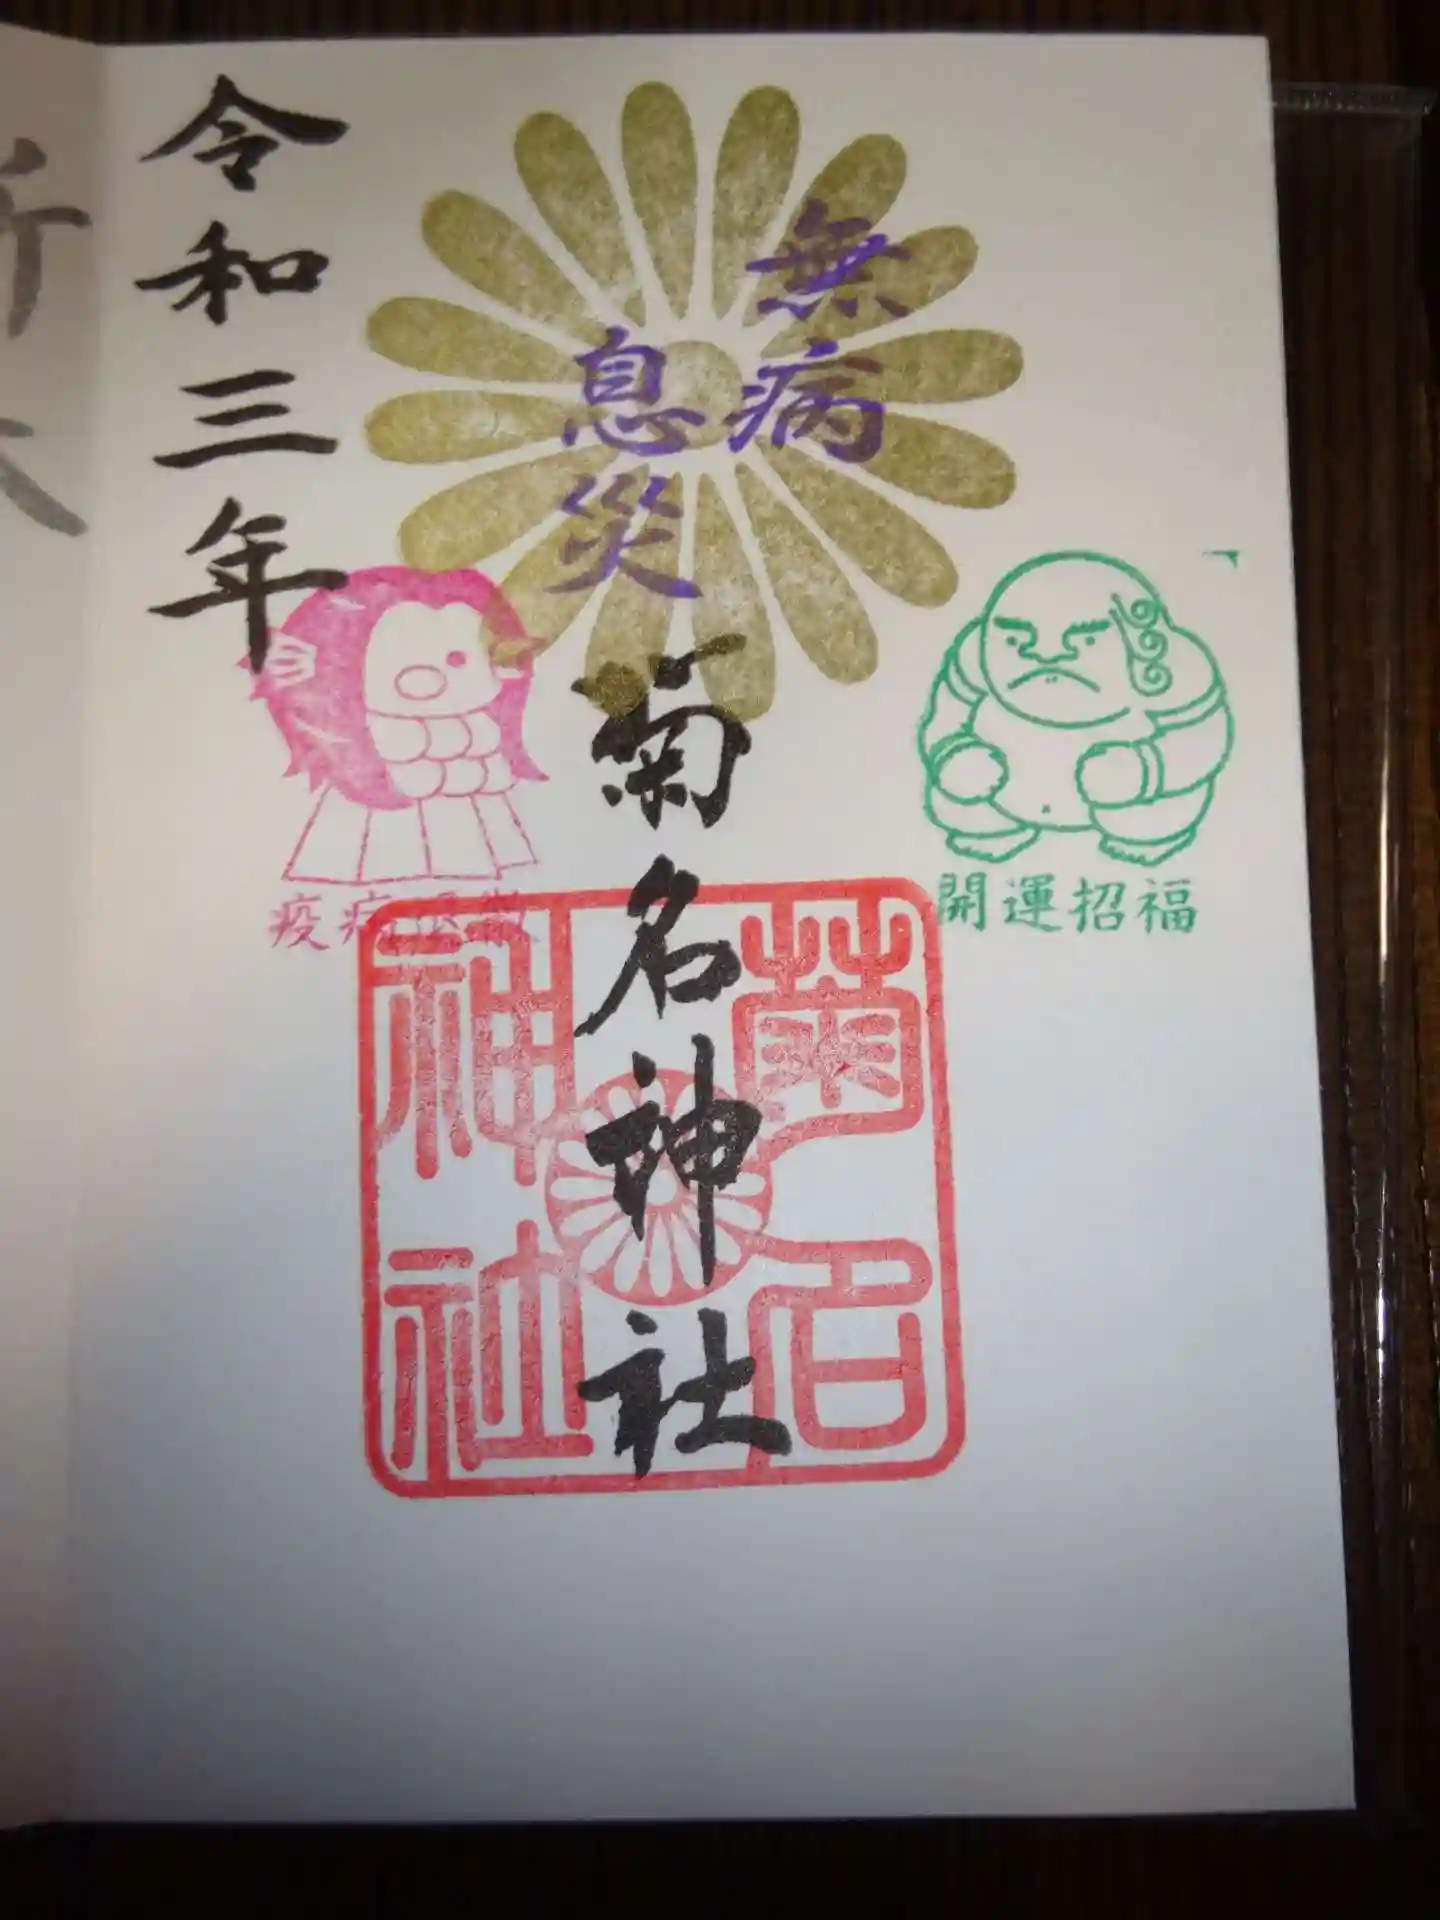 無病
息災
開運招福
菊名神社
菊名
神社
令和三年
疫病退散